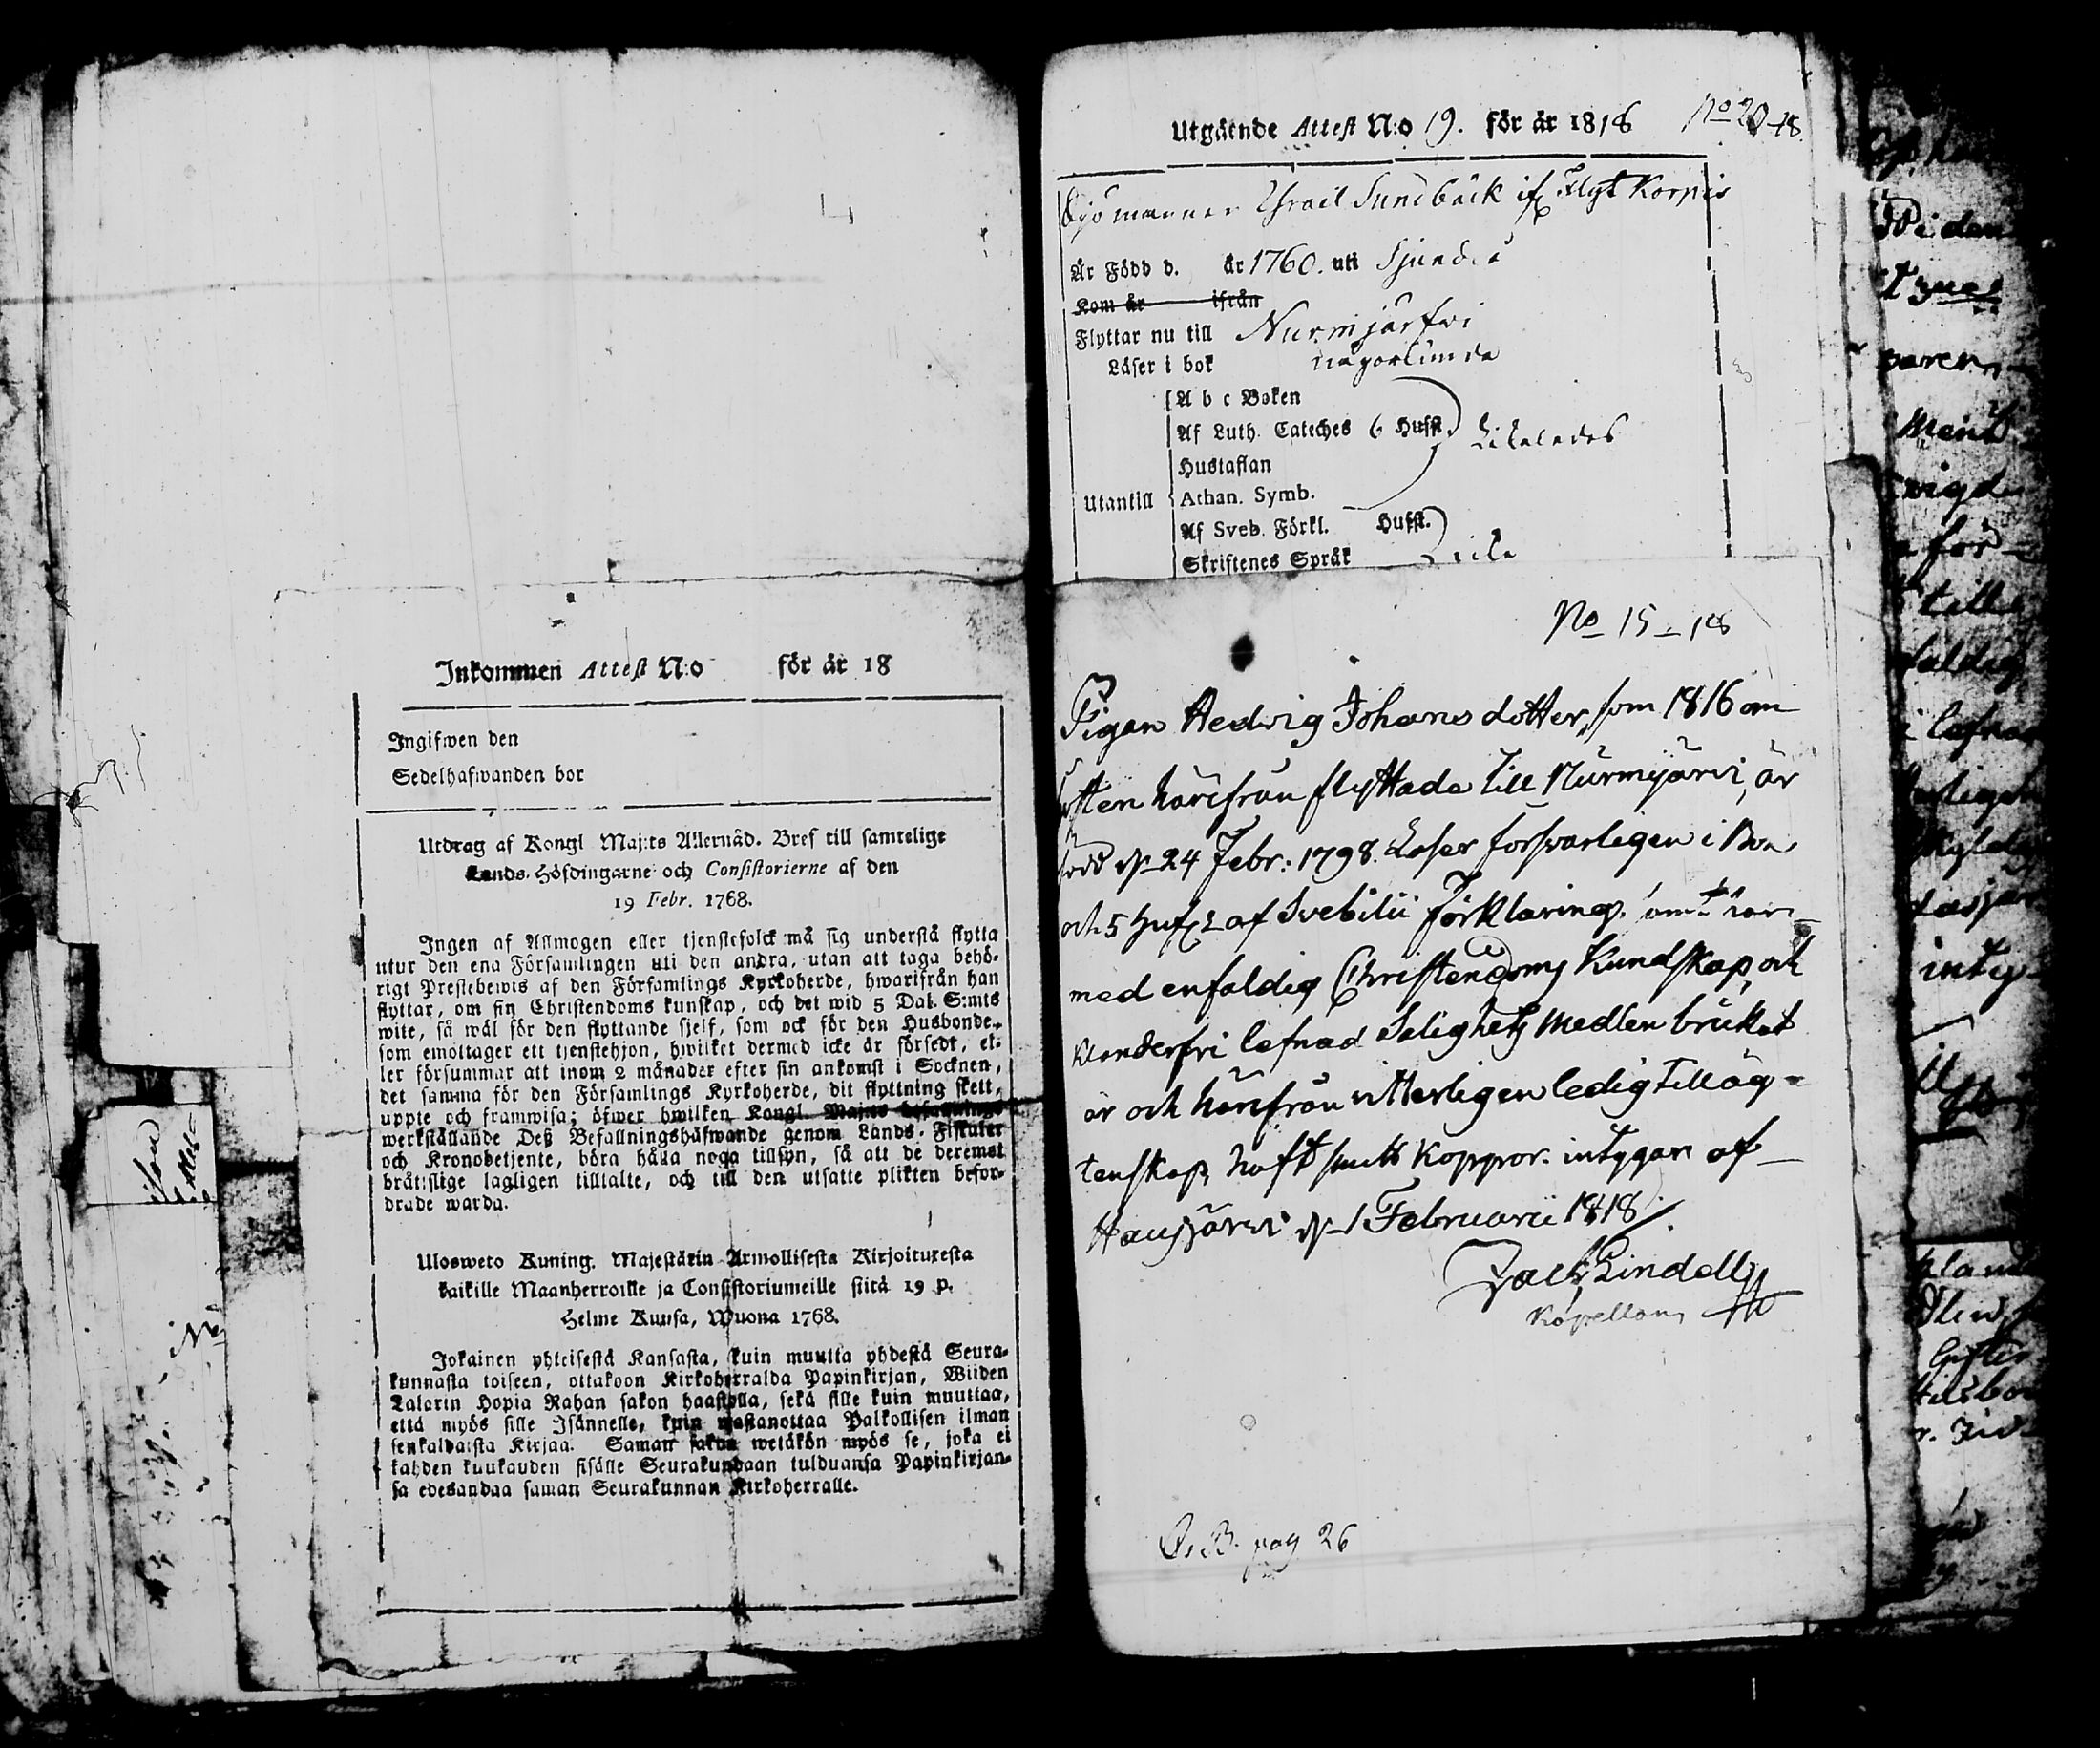 Inkommen Attest N:o för år 18
Ingifwen den
Sedelhafwanden bor
Utdrag af Kongl Maj:ts Allernåd. Bref till samtelige
Lands-Höfdingarne och Consistorierne af den
19 Febr. 1768.
Ingen af Allmogen eller tjenstefolck må sig understå flytta
utur den ena Församlingen uti den andra, utan att taga behö-
rigt Prestebewis af den Församlings Kyrkoherde, hwarifrån han
flyttar, om sin Christendoms kunskap, och det wid 5 Dal. S:mts
wite, så wäl för den flyttande sjelf, som ock för den Husbonde,
som emottager ett tjenstehjon, hwilket dermed icke är försedt, el-
ler försummar att inom 2 månader efter sin ankomst i Socknen,
det samma för den Församlings Kyrkoherde, dit flyttning skett,
uppte och framwisa; öfwer hwilken Kongl. Maj:ts befallnings
werkställande Deß Befallningshäfwande genom Lands-Fiskaler
och Kronobetjente, böra hålla noga tillsyn, så att de deremot
brättslige lagligen tilltalte, och till den utsatte plikten befor-
drade warda.
Ulosweto Kuning. Majestätin Armollisesta Kirjoituxesta
kaikille Maanherroille ja Consistoriumeille siitä 19 p.
Helme Kuusa, Wuona 1768.
Jokainen yhteisestä Kansasta, kuin muutta yhdestä Seura-
kunnasta toiseen, ottakoon Kirkoherralda Papinkirjan, Wiiden
Talarin Hopia Rahan sakon haastolla, sekä sille kuin muuttaa,
että myös sille Isännelle, kuin wastanottaa Palkollisen ilman
senkaldaista Kirjaa. Saman sakon wetäkön myös se, joka ei
kahden kuukauden sisälle Seurakundaan tulduansa Papinkirjan-
sa edesandaa saman Seurakunnan Kirkoherralle.
Utgående Attest N:o 19. för år 1818 No 20-18
Sjömannen Israel Sundbäck if Flygt Korpis
Är Född d. år 1760. uti Sjundeå
Kom år ifrån
Flyttar nu till Nurmijärfvi
Läser i bok någorlunda
A b c Boken
Af Luth. Cateches 6 Hufst. Likaledes
Hustaflan
Utantill Athan. Symb.
Af Sveb. Förkl. Hufst.
Skriftenes Språk
No 15-18
Pigan Hedvig Johans dotter, som 1816 om
hösten härifrån flyttade till Nurmijärvi, är
född d 24 Febr: 1798. Läser försvarligen i Bok
och 5 Huf af Svebilii Förklaring,
med enfaldig Christendoms Kundskap, och
klanderfri lefnad Salighets Medlen brukat
är och härifrån vitterligen ledig till äg-
tenskap, haft smitt koppor. intygar af
Hausjärvi d 1 Februarii 1818.
Zach. Lindell
Kapellan
B. pag 26